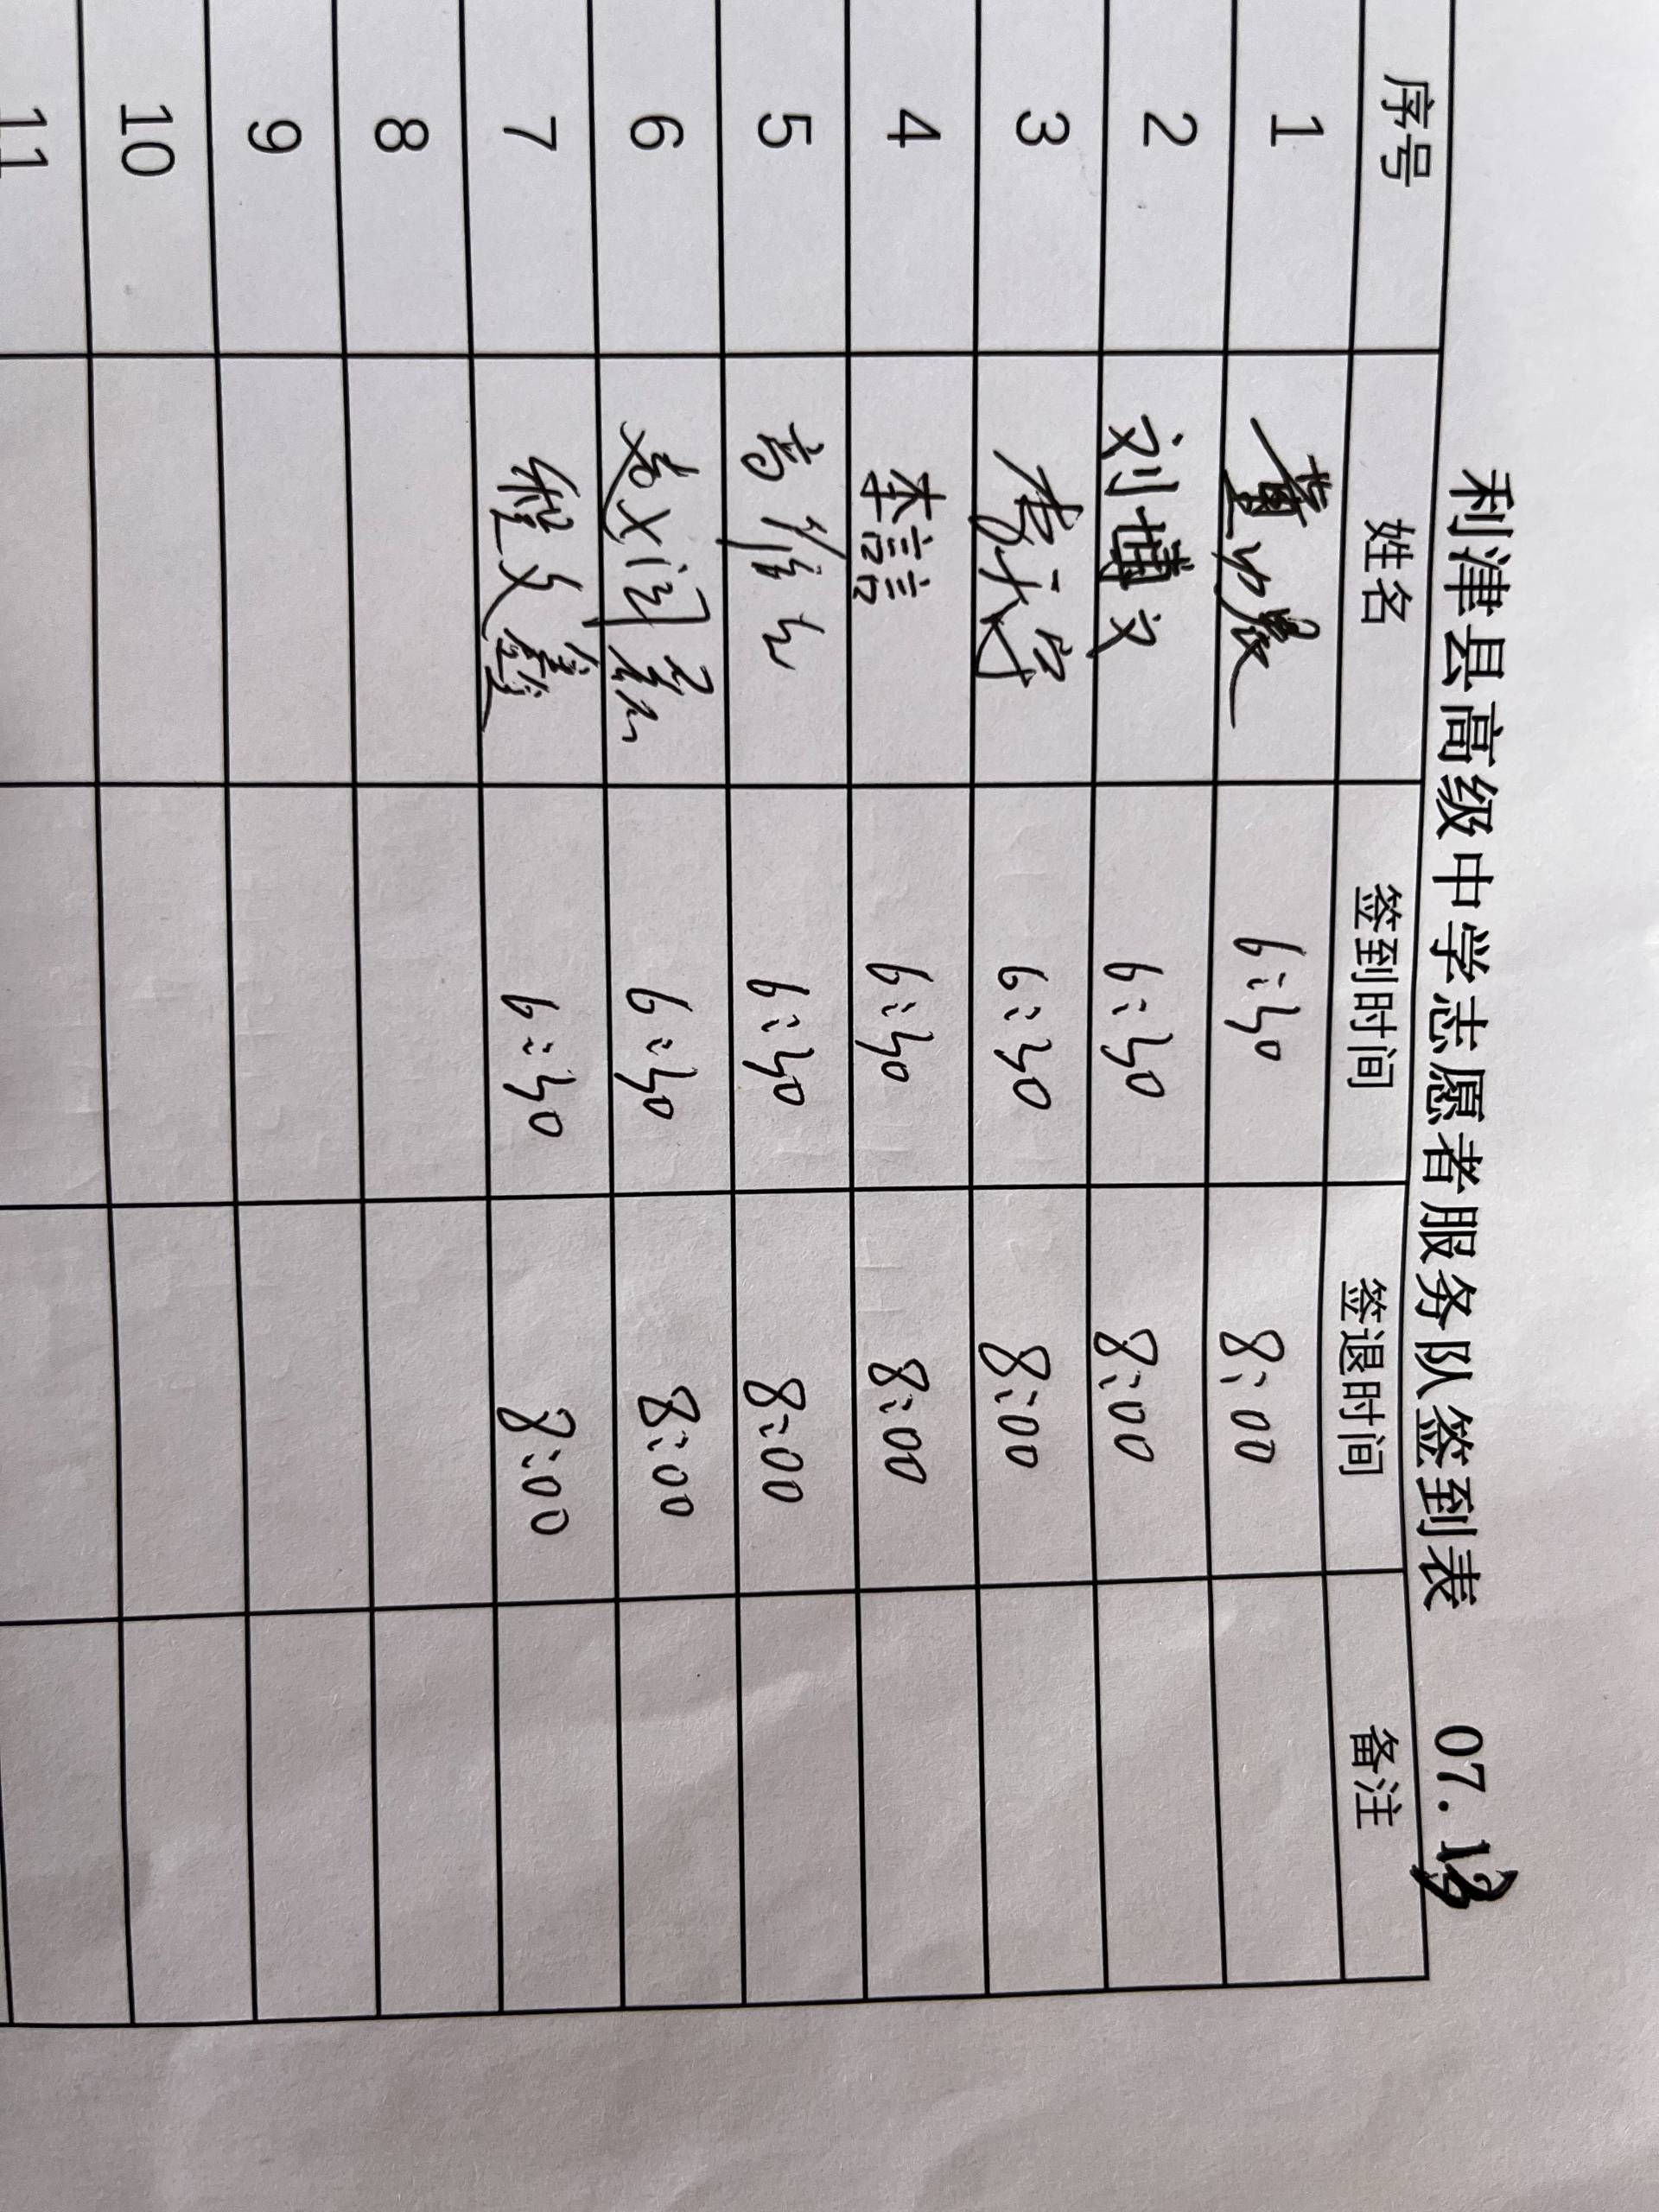 利津县高级中学志愿者服务队签到表 07.13
序号 姓名 签到时间 签退时间 备注
1 6:30 8:00
2 刘博文 6:30 8:00
3 6:30 8:00
4 李喆 6:30 8:00
5 6:30 8:00
6 6:30 8:00
7 程文鑫 6:30 8:00
8
9
10
11